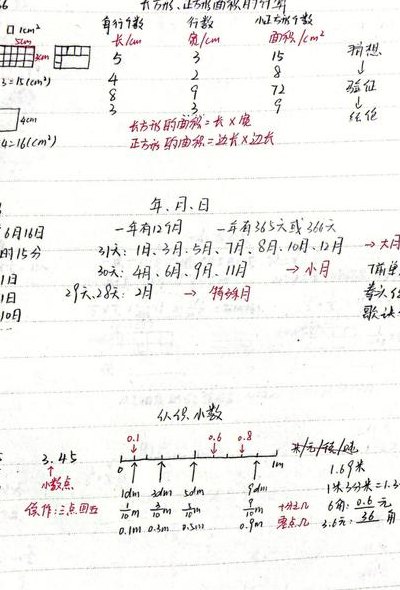 长方形、正方形面积的计算
□ 1cm²
每行个数 行数 小正方形个数
长/cm 宽/cm 面积/cm²
5cm
3cm
5 3 15
猜想
↓
3=15(cm²)
4 2 8
验证
↓
8 9 72
结论
3 3 9
4cm
长方形的面积=长×宽
4=16(cm²)
正方形的面积=边长×边长
年、月、日
6月16日
一年有12个月 一年有365天或366天
时15分
31天: 1月、3月、5月、7月、8月、10月、12月 → 大月
30天: 4月、6月、9月、11月 → 小月
1日
29天、28天: 2月 → 特殊月
1日
10月
认识小数
3.45
↑
小数点
读作:三点四五
0.1 0.6 0.8
0 1m
1dm 3dm 5dm 9dm
1/10m 3/10m 5/10m 9/10m
0.1m 0.3m 0.5m 0.9m
十分之几
零点几
米/元/
1.69米
1米3分米=1.3
6角: 0.6元
3.6元: 36角